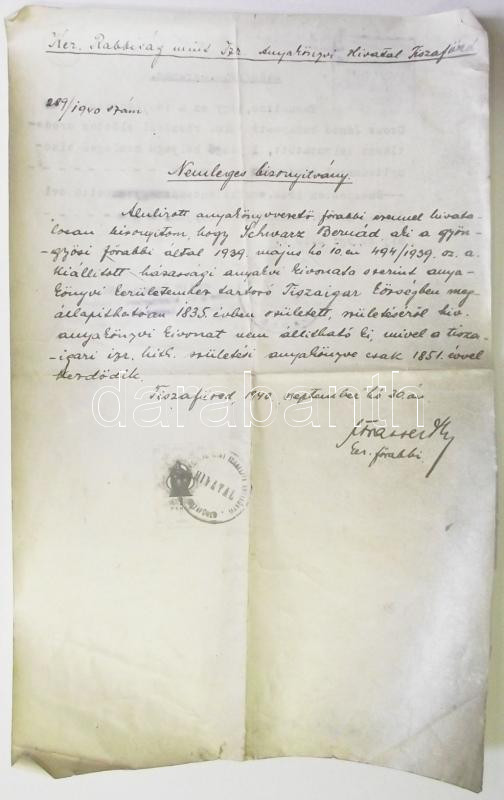 Ker. Rabbiság mint Izr. Anyakönyvi Hivatal Tiszafüred
289/1940 szám.
Nemleges bizonyitvány.
Alulirott anyakönyvvezető főrabbi ezennel hivata-
losan bizonyitom, hogy Schwarz Bernád aki a gyön-
-gyösi főrabbi által 1939. május hó 10.én 494/1939. sz. a.
kiállitott házassági anyakvi kivonata szerint anya-
könyvi kerületemhez tartozó Tiszaigar községben meg-
állapithatóan 1835. évben született, születéséről hiv.
anyakönyvi kivonat nem állitható ki, mivel a tisza-
igari izr. hitk. születési anyakönyve csak 1851. évvel
kezdődik.
Tiszafüred, 1940. szeptember hó 30.án.
ker. főrabbi.
HIVATAL
darabanth